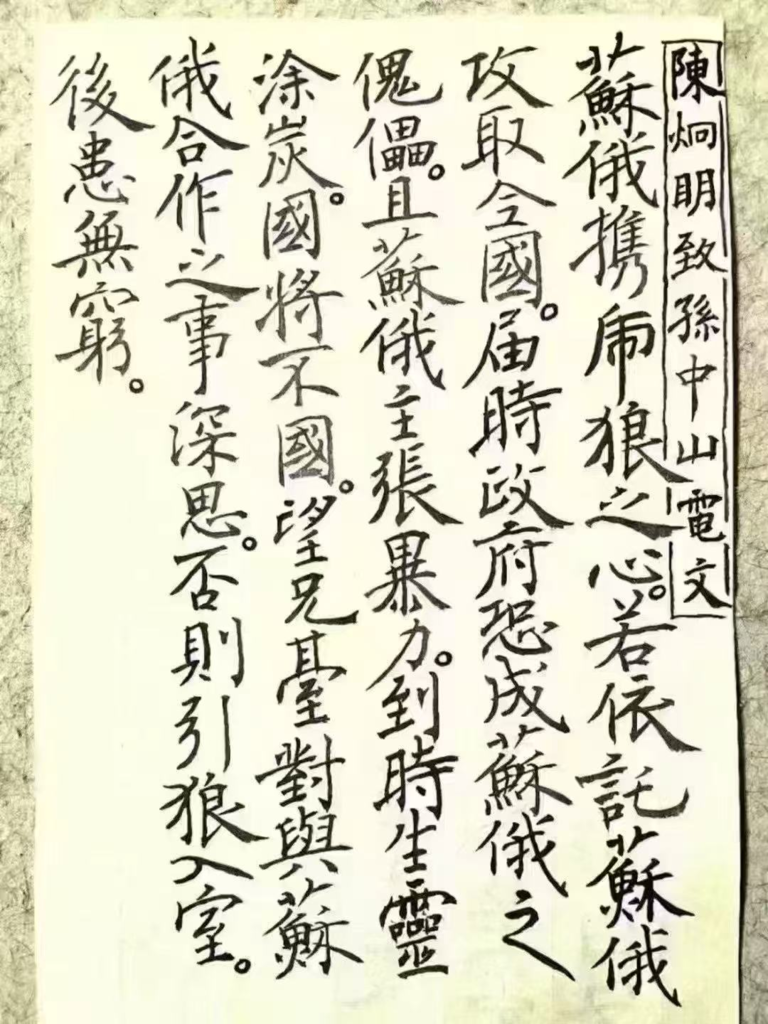 陳炯明致孫中山電文
蘇俄攜虎狼之心。若依託蘇俄
攻取全國。屆時政府恐成蘇俄之
傀儡。且蘇俄主張暴力。到時生靈
涂炭。國將不國。望兄臺對與蘇
俄合作之事深思。否則引狼入室。
後患無窮。